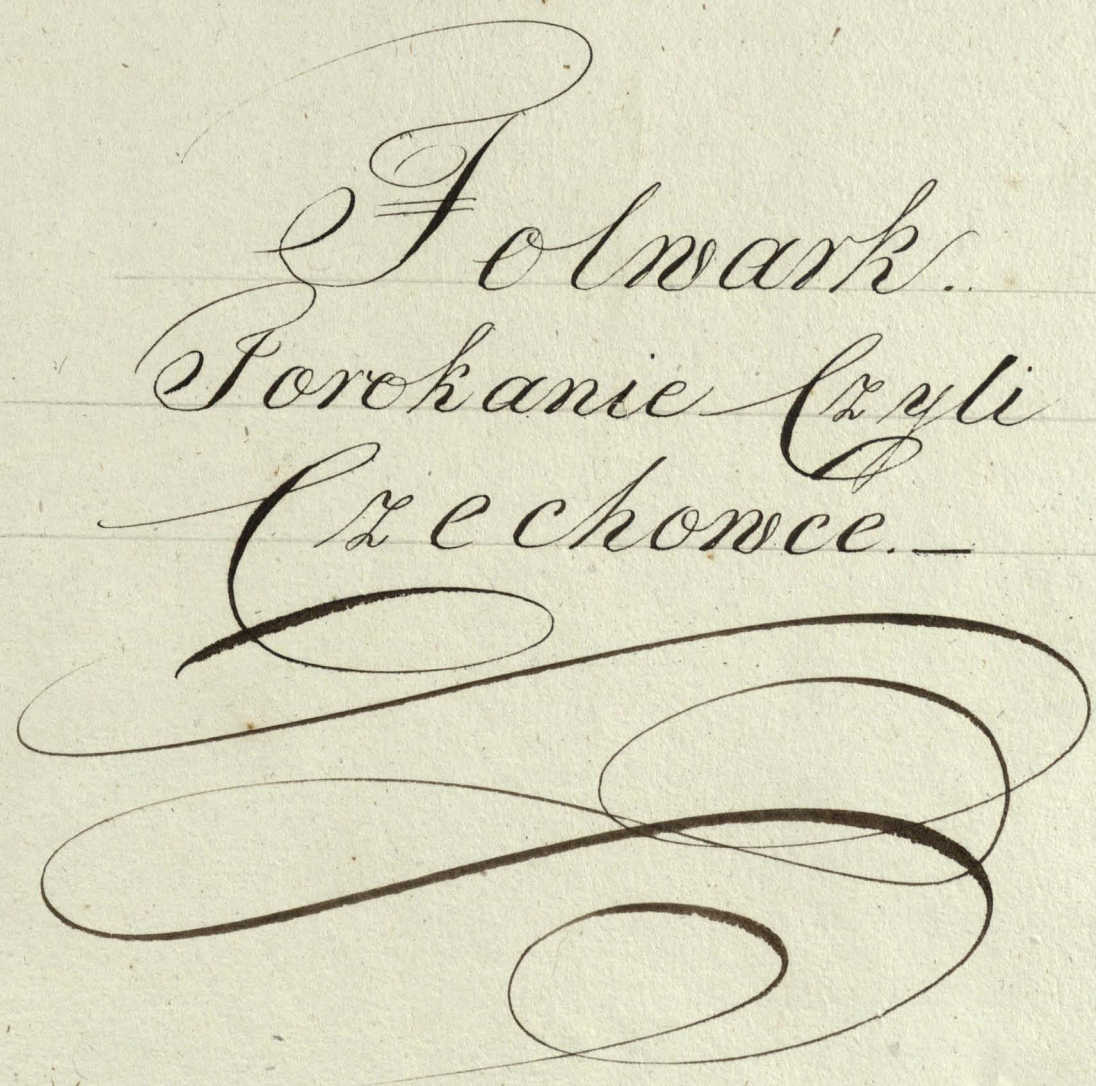 Folwark.
Torokanie Czyli
Czechowce. —